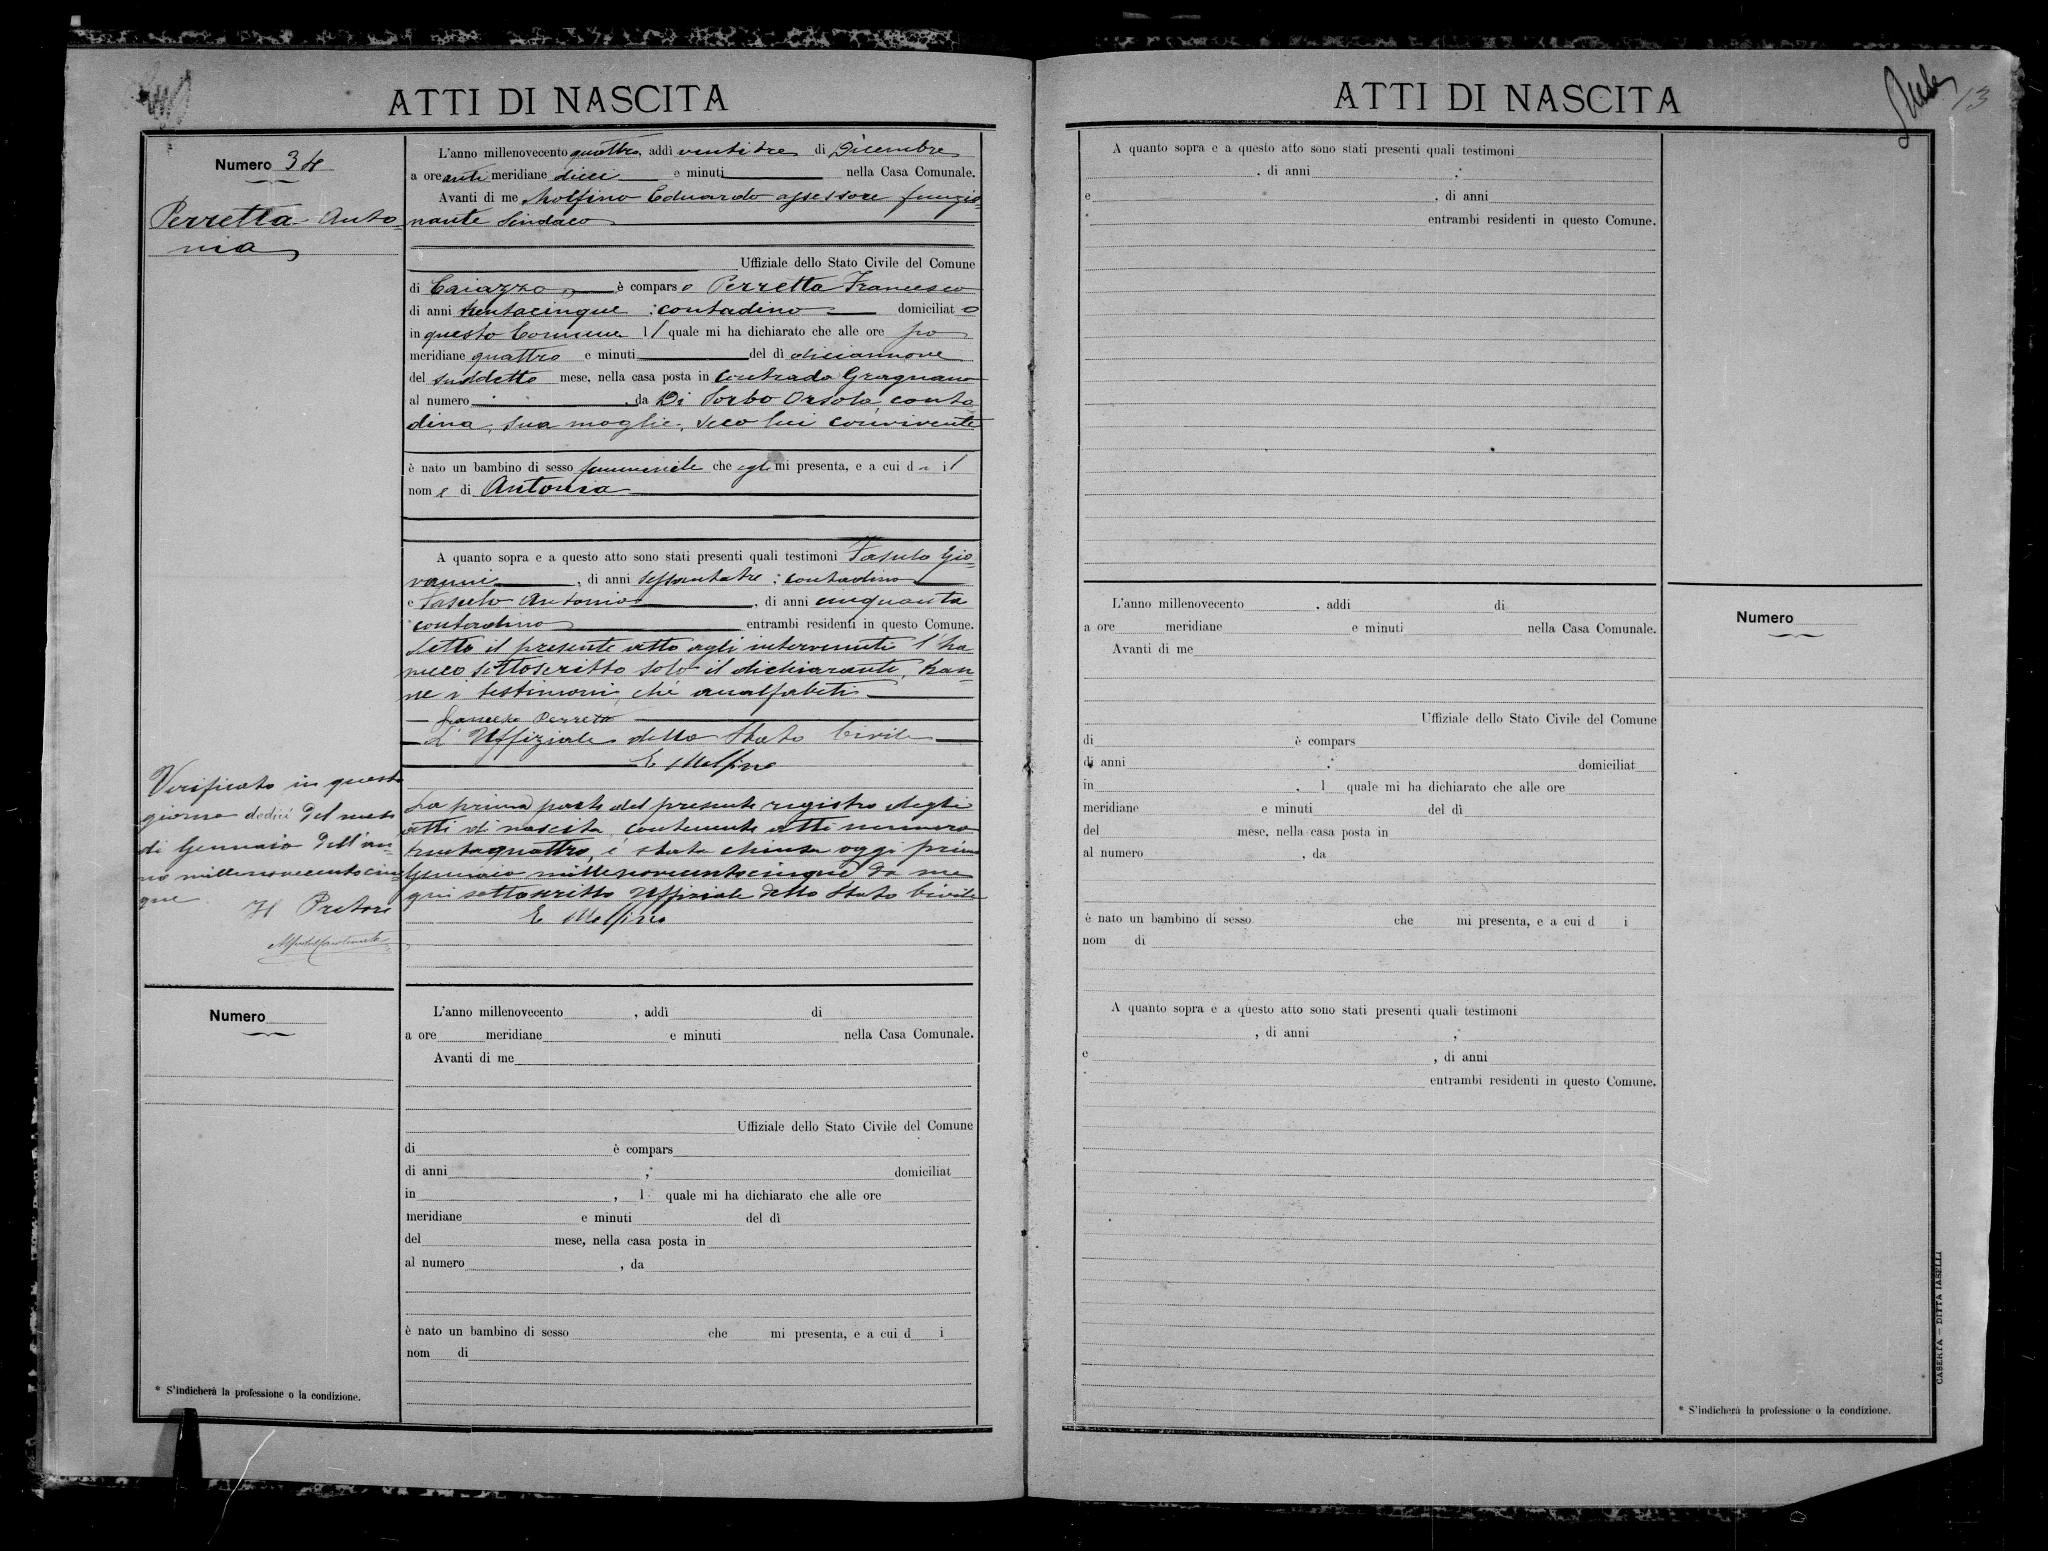 ATTI DI NASCITA
Numero 34
Perretta Anto
nia
L'anno millenovecento quattro, addì ventitre di Dicembre
a ore anti meridiane dieci e minuti nella Casa Comunale.
Avanti di me Molfino Eduardo assessore funzio-
nante Sindaco
Uffiziale dello Stato Civile del Comune
di Caiazzo è comparso Perretta Francesco
di anni trentacinque ; contadino domiciliato
in questo Comune l quale mi ha dichiarato che alle ore po
meridiane quattro e minuti del dì diciannove
del suddetto mese, nella casa posta in Contrada Gragnano
al numero , da Di Sorbo Orsola, conta
dina, sua moglie, seco lui convivente
è nato un bambino di sesso femminile che egli mi presenta, e a cui dà il
nome di Antonia
A quanto sopra e a questo atto sono stati presenti quali testimoni Fasulo Gio-
vanni , di anni sessantatre ; contadino
e Fasulo Antonio , di anni cinquanta
contadino entrambi residenti in questo Comune.
Letto il presente atto agli intervenuti l'ha
meco sottoscritto solo il dichiarante,
i testimoni, chè analfabeti
Francesco Perretta
L'Uffiziale dello Stato Civile
E Molfino
Verificato in questo
giorno dodici del mese
di Gennaio dell'an-
no millenovecentocin
que Il Pretore
La prima parte del presente registro degli
atti di nascita, contenente atti numero
trentaquattro, è stata chiusa oggi primo
Gennaio millenovecentocinque da me
qui sottoscritto Uffiziale dello Stato Civile
E Molfino
Numero
L'anno millenovecento , addì di
a ore meridiane e minuti nella Casa Comunale.
Avanti di me
Uffiziale dello Stato Civile del Comune
di è compars
di anni ; domiciliat
in , l quale mi ha dichiarato che alle ore
meridiane e minuti del dì
del mese, nella casa posta in
al numero , da
è nato un bambino di sesso che mi presenta, e a cui d i
nom di
* S'indicherà la professione o la condizione.
ATTI DI NASCITA
13
A quanto sopra e a questo atto sono stati presenti quali testimoni
, di anni ;
e , di anni
entrambi residenti in questo Comune.
L'anno millenovecento , addì di
a ore meridiane e minuti nella Casa Comunale.
Avanti di me
Uffiziale dello Stato Civile del Comune
di è compars
di anni ; domiciliat
in , l quale mi ha dichiarato che alle ore
meridiane e minuti del dì
del mese, nella casa posta in
al numero , da
è nato un bambino di sesso che mi presenta, e a cui d i
nom di
A quanto sopra e a questo atto sono stati presenti quali testimoni
, di anni ;
e , di anni
entrambi residenti in questo Comune.
Numero
* S'indicherà la professione o la condizione.
CASERTA — DITTA IASELLI